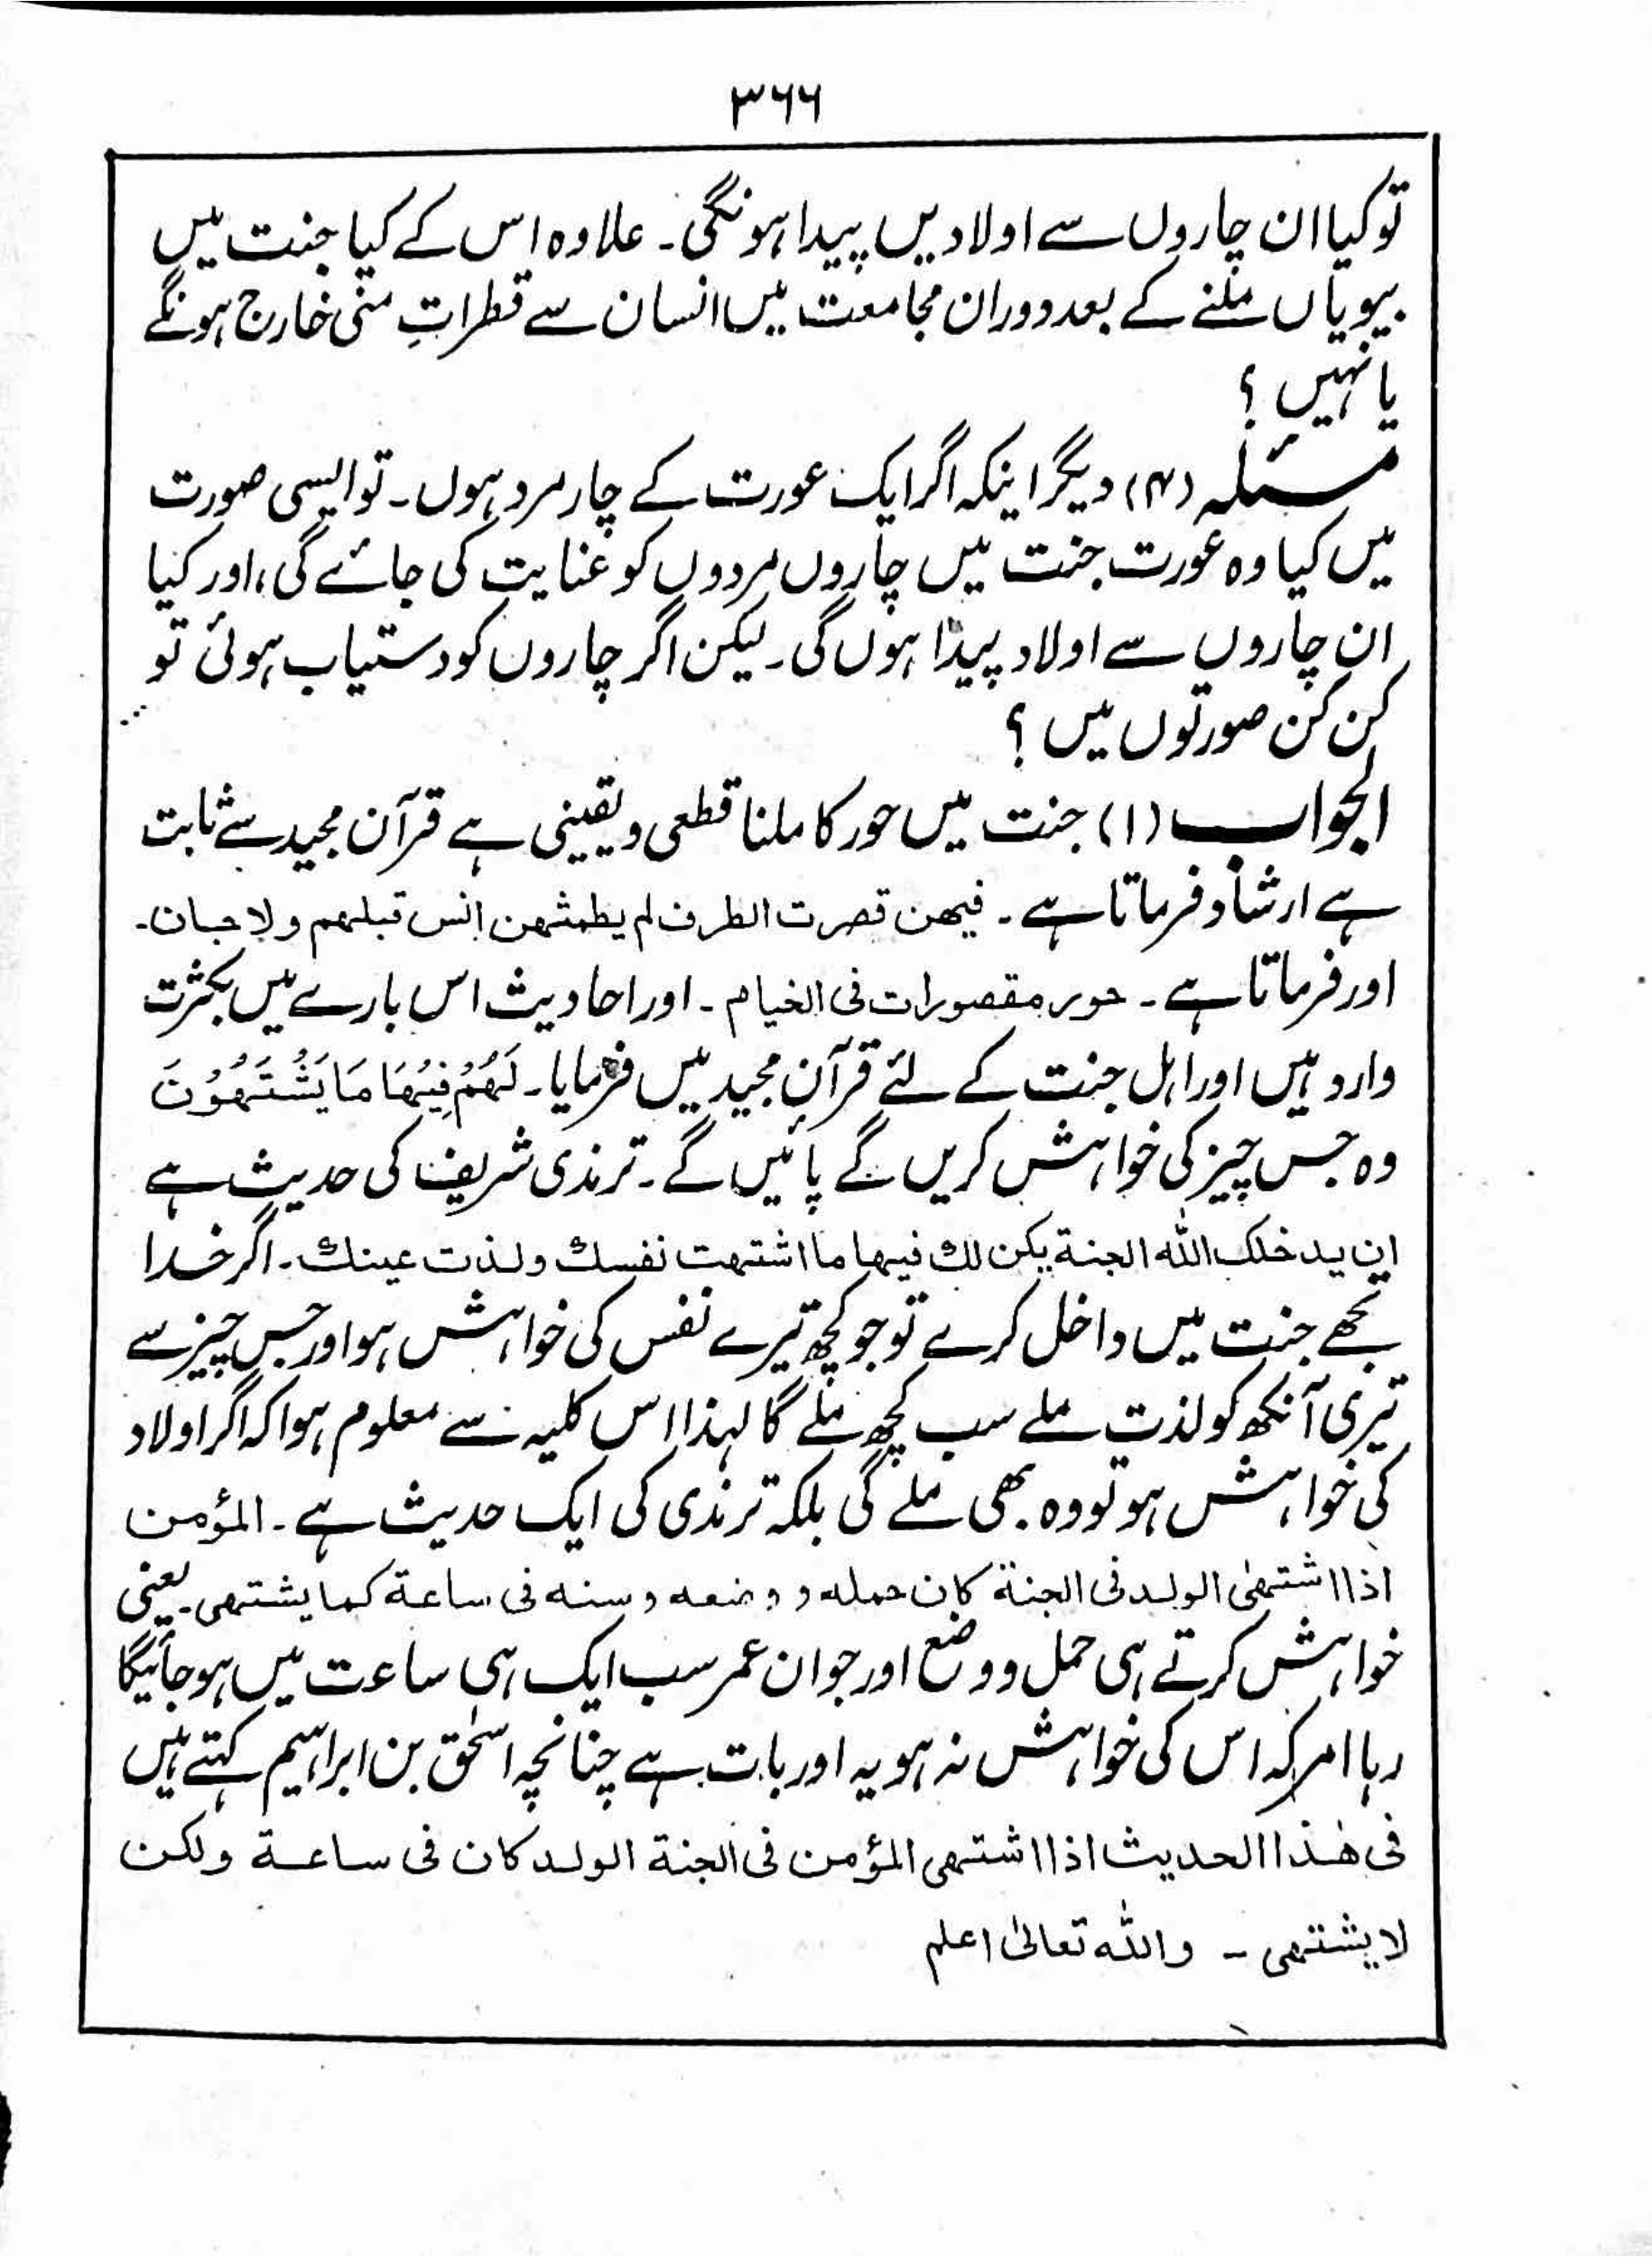 ۳۶۶
تو کیا ان چاروں سے اولادیں پیدا ہونگی۔ علاوہ اس کے کیا جنت میں
بیویاں ملنے کے بعد دوران مجامعت میں انسان سے قطراتِ منی خارج ہونگے
یا نہیں ؟
مسئلہ (۴) دیگر اینکہ اگر ایک عورت کے چار مرد ہوں۔ تو ایسی صورت
میں کیا وہ عورت جنت میں چاروں مردوں کو عنایت کی جائے گی، اور کیا
ان چاروں سے اولاد پیدا ہوں گی۔ لیکن اگر چاروں کو دستیاب ہوئی تو
کن کن صورتوں میں ؟
الجواب (۱) جنت میں حور کا ملنا قطعی و یقینی ہے قرآن مجید سے ثابت
ہے ارشاد فرماتا ہے۔ فیھن قصرت الطرف لم یطمثھن انس قبلھم ولا جان۔
اور فرماتا ہے۔ حور مقصورات فی الخیام۔ اور احادیث اس بارے میں بکثرت
وارد ہیں اور اہل جنت کے لئے قرآن مجید میں فرمایا۔ لَهُمْ فِيْهَا مَا يَشْتَهُوْنَ
وہ جس چیز کی خواہش کریں گے پائیں گے۔ ترمذی شریف کی حدیث ہے
ان یدخلک اللہ الجنة یکن لك فیها ما اشتهت نفسك ولذت عینك۔ اگر خدا
تجھے جنت میں داخل کرے تو جو کچھ تیرے نفس کی خواہش ہو اور جس چیز سے
تیری آنکھ کو لذت ملے سب کچھ ملے گا لہذا اس کلیہ سے معلوم ہوا کہ اگر اولاد
کی خواہش ہو تو وہ بھی ملے گی بلکہ ترمذی کی ایک حدیث ہے۔ المؤمن
اذا اشتھیٰ الولد فی الجنة کان حملہ و وضعہ و سنہ فی ساعة کما یشتھی۔ یعنی
خواہش کرتے ہی حمل و وضع اور جوان عمر سب ایک ہی ساعت میں ہوجائیگا
رہا امر کہ اس کی خواہش نہ ہو یہ اور بات ہے چنانچہ اسحٰق بن ابراہیم کہتے ہیں
فی ھٰذا الحدیث اذا اشتھی المؤمن فی الجنة الولد کان فی ساعة ولکن
لا یشتھی ۔ واللہ تعالیٰ اعلم